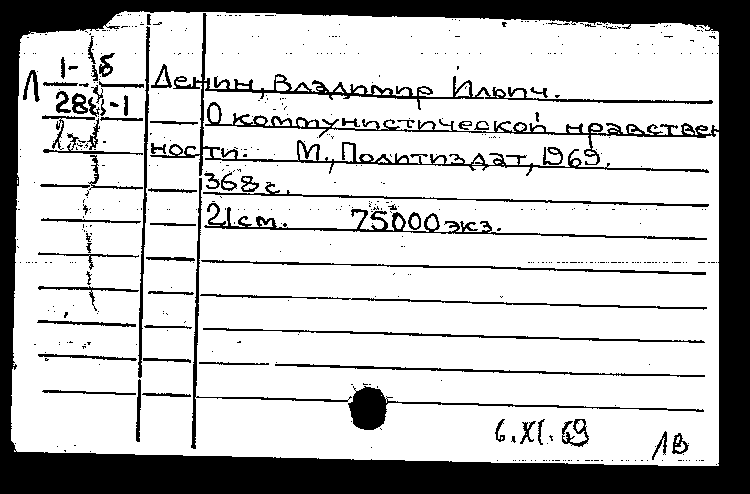 Л 1- б
288-1
2 экз.
Ленин, Владимир Ильич.
О коммунистической нравствен
ности. М., Политиздат, 1969.
368 с.
21 см. 75000 экз.
6.XI.69
ЛВ